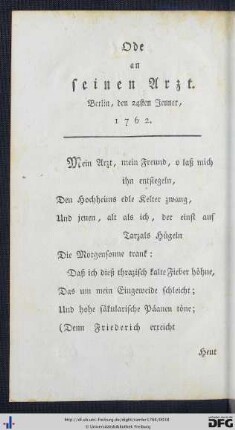 Ode
an
seinen Arzt.
Berlin, den 24sten Jenner,
1762.
Mein Arzt, mein Freund, o laß mich
ihn entsiegeln,
Den Hochheims edle Kelter zwang,
Und jenen, alt als ich, der einst auf
Tarzals Hügeln
Die Morgensonne trank:
Daß ich dieß thrazisch kalte Fieber höhne,
Das um mein Eingeweide schleicht;
Und hohe säkularische Päanen töne;
(Denn Friederich erreicht
Heut
© Universitätsbibliothek Freiburg
DFG